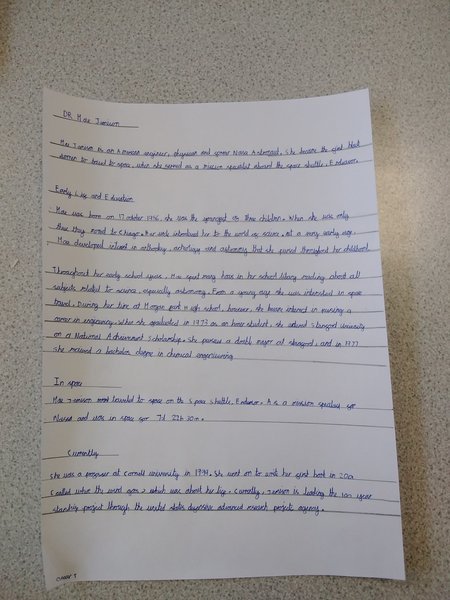 DR Mae Jemison
Mae Jemison is an American engineer, physician and former Nasa Astronaut. She became the first black
women to travel to space, when she served as a mission specialist aboard the space shuttle, Endeavor.
Early Life and Education
Mae was born on 17 october 1956, she was the youngest of three children. When she was only
three they moved to Chicago. Her uncle introduced her to the world of science. At a very early age,
Mae developed interest in anthropology, archaeology and astronomy that she pursued throughout her childhood.
Throughout her early school years, Mae spent many hours in her school library reading about all
subjects related to science, especially astronomy. From a young age she was interested in space
travel. During her time at Morgan park High school, however, she became interested in pursuing a
career in engineering. When she graduated in 1973 as an honor student, she entered Stanford University
on a National Achievement Scholarship. She pursued a double major at stanford, and in 1977
she received a bachelor degree in chemical engineering
In space
Mae Jemison went travelled to space on the Space Shuttle, Endeavor. As a mission specialist for
and was in space for 7d 22h 30m.
Currently
She was a professor at Cornell University in 1999. She went on to write her first book in 2001
Called where the wind goes which was about her life. Currently, Jemison is leading the 100 year
starship project through the united states defensive advanced research projects agency.